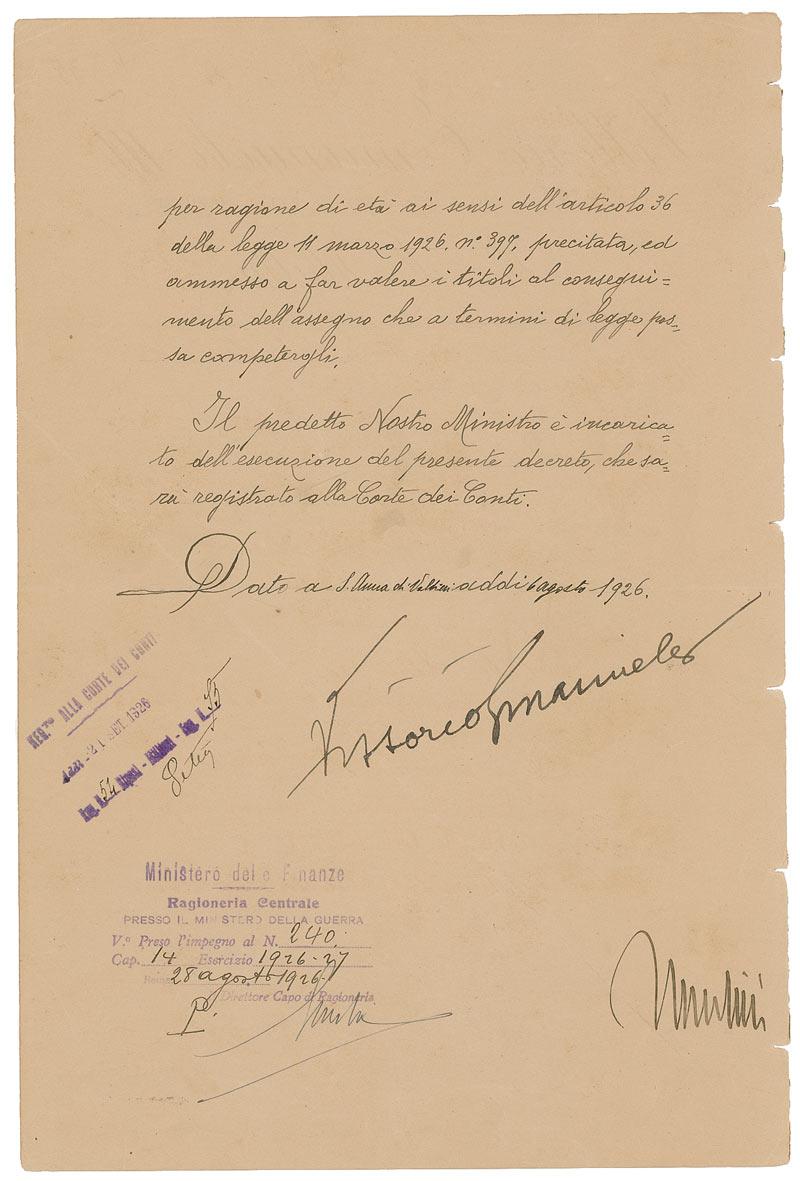 per ragione di età ai sensi dell'articolo 36
della legge 11 marzo 1926. n.º 397, precitata, ed
ammesso a far valere i titoli al consegui=
mento dell'assegno che a termini di legge pos=
sa competergli.
Il predetto Nostro Ministro è incarica=
to dell'esecuzione del presente decreto, che sa=
rà registrato alla Corte dei Conti.
Dato a S. Anna di Valdieri addì 6 agosto 1926.
Vittorio Emanuele
REG.TO ALLA CORTE DEI CONTI
21 SET 1926
Ministero delle Finanze
Ragioneria Centrale
PRESSO IL MINISTERO DELLA GUERRA
V.º Preso l'impegno al N. 240.
Cap. 14 Esercizio 1926-27
28 agosto 1926
P. Direttore Capo di Ragioneria
Mussolini